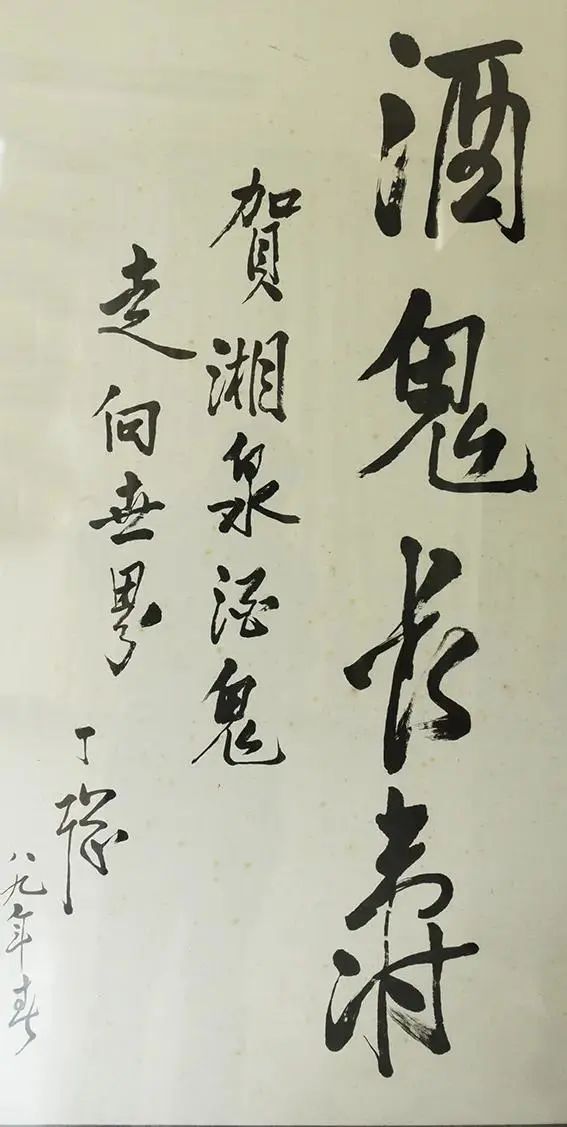 酒鬼长寿
賀湘泉酒鬼
走向世界
丁聪
八九年春